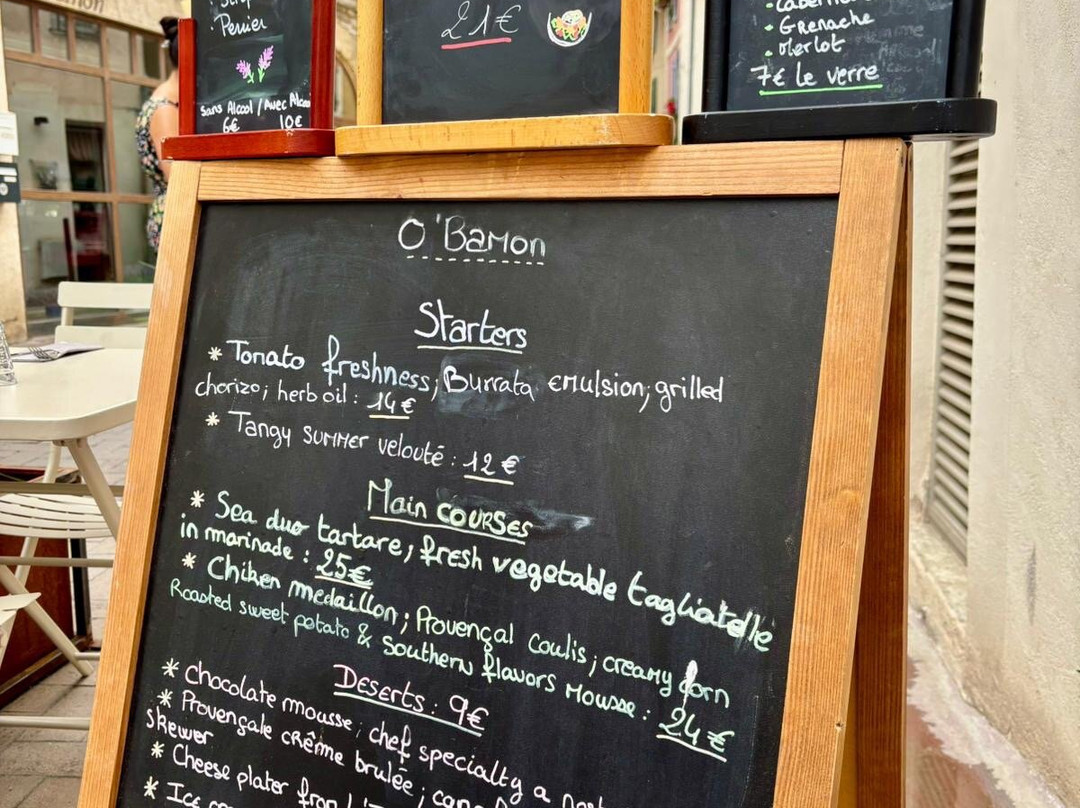 Perrier
Sans Alcool / Avec Alcool
6€ 10€
21€
Grenache
Merlot
7€ le verre
O'Bamon
Starters
* Tomato freshness; Burrata emulsion; grilled
chorizo; herb oil: 14€
* Tangy summer velouté: 12€
Main courses
* Sea duo tartare; fresh vegetable tagliatelle
in marinade: 25€
* Chiken medaillon; Provençal Coulis; creamy corn
Roasted sweet potato & Southern flavors Mousse: 24€
Deserts: 9€
* Chocolate mousse; chef specialty
* Provençale crême brulée;
skewer
* Cheese plater
* Ice